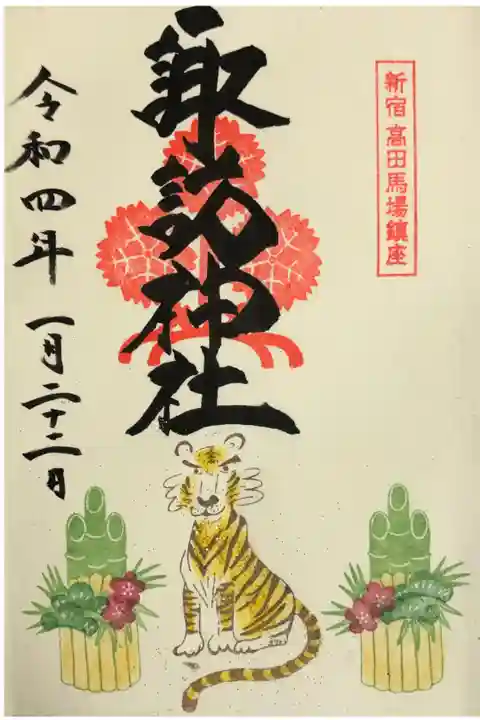 新宿高田馬場鎮座
諏訪神社
令和四年 一月二十二日